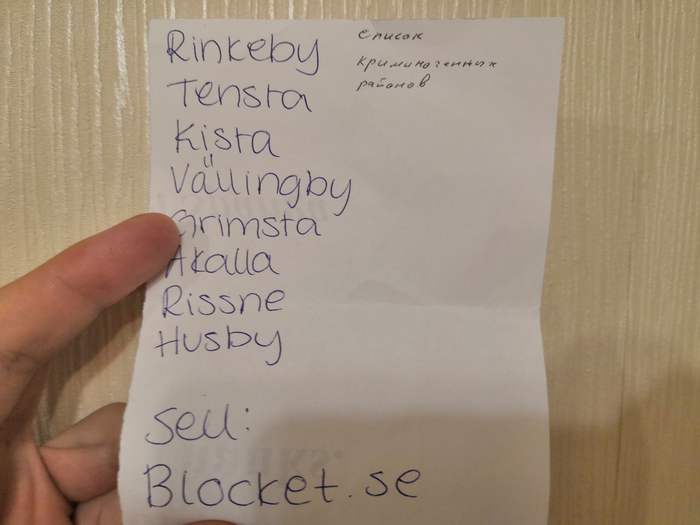 Rinkeby
Tensta
Kista
Vällingby
Grimsta
Akalla
Rissne
Husby
список
криминогенных
районов
sell:
Blocket.se